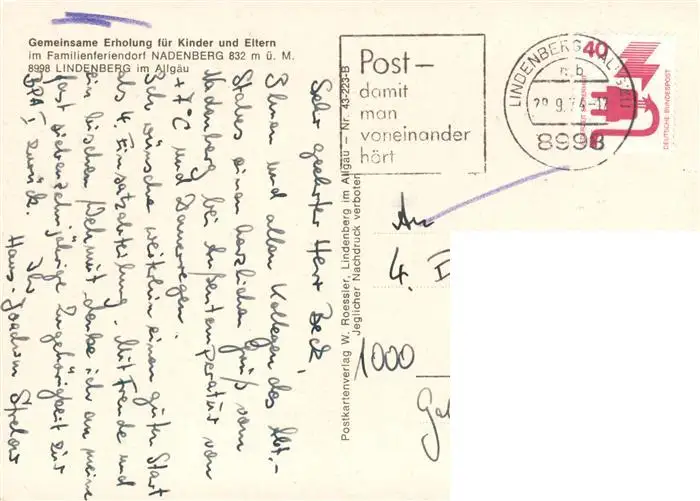 Gemeinsame Erholung für Kinder und Eltern
im Familienferiendorf NADENBERG 832 m ü. M.
8998 LINDENBERG im Allgäu
Sehr geehrter Herr Beck,
Ihnen und allen Kollegen des Abt.-
Stabes einen herzlichen Gruß vom
Nadenberg bei Außentemperatur von
+7°C und Dauerregen.
Ich wünsche weiterhin einen guten Start
als 4. Einsatzabteilung. Mit Freude und
ein bißchen Wehmut denke ich an meine
fast siebenzehnjährige Zugehörigkeit zur
BPA I zurück. Ihr
Hans-Joachim Strelow
Postkartenverlag W. Roessler, Lindenberg im Allgäu – Nr. 43-223-B
Jeglicher Nachdruck verboten
Post –
damit
man
voneinander
hört
LINDENBERG
29.9.74-17
8998
40
DEUTSCHE BUNDESPOST
An
4.
1000